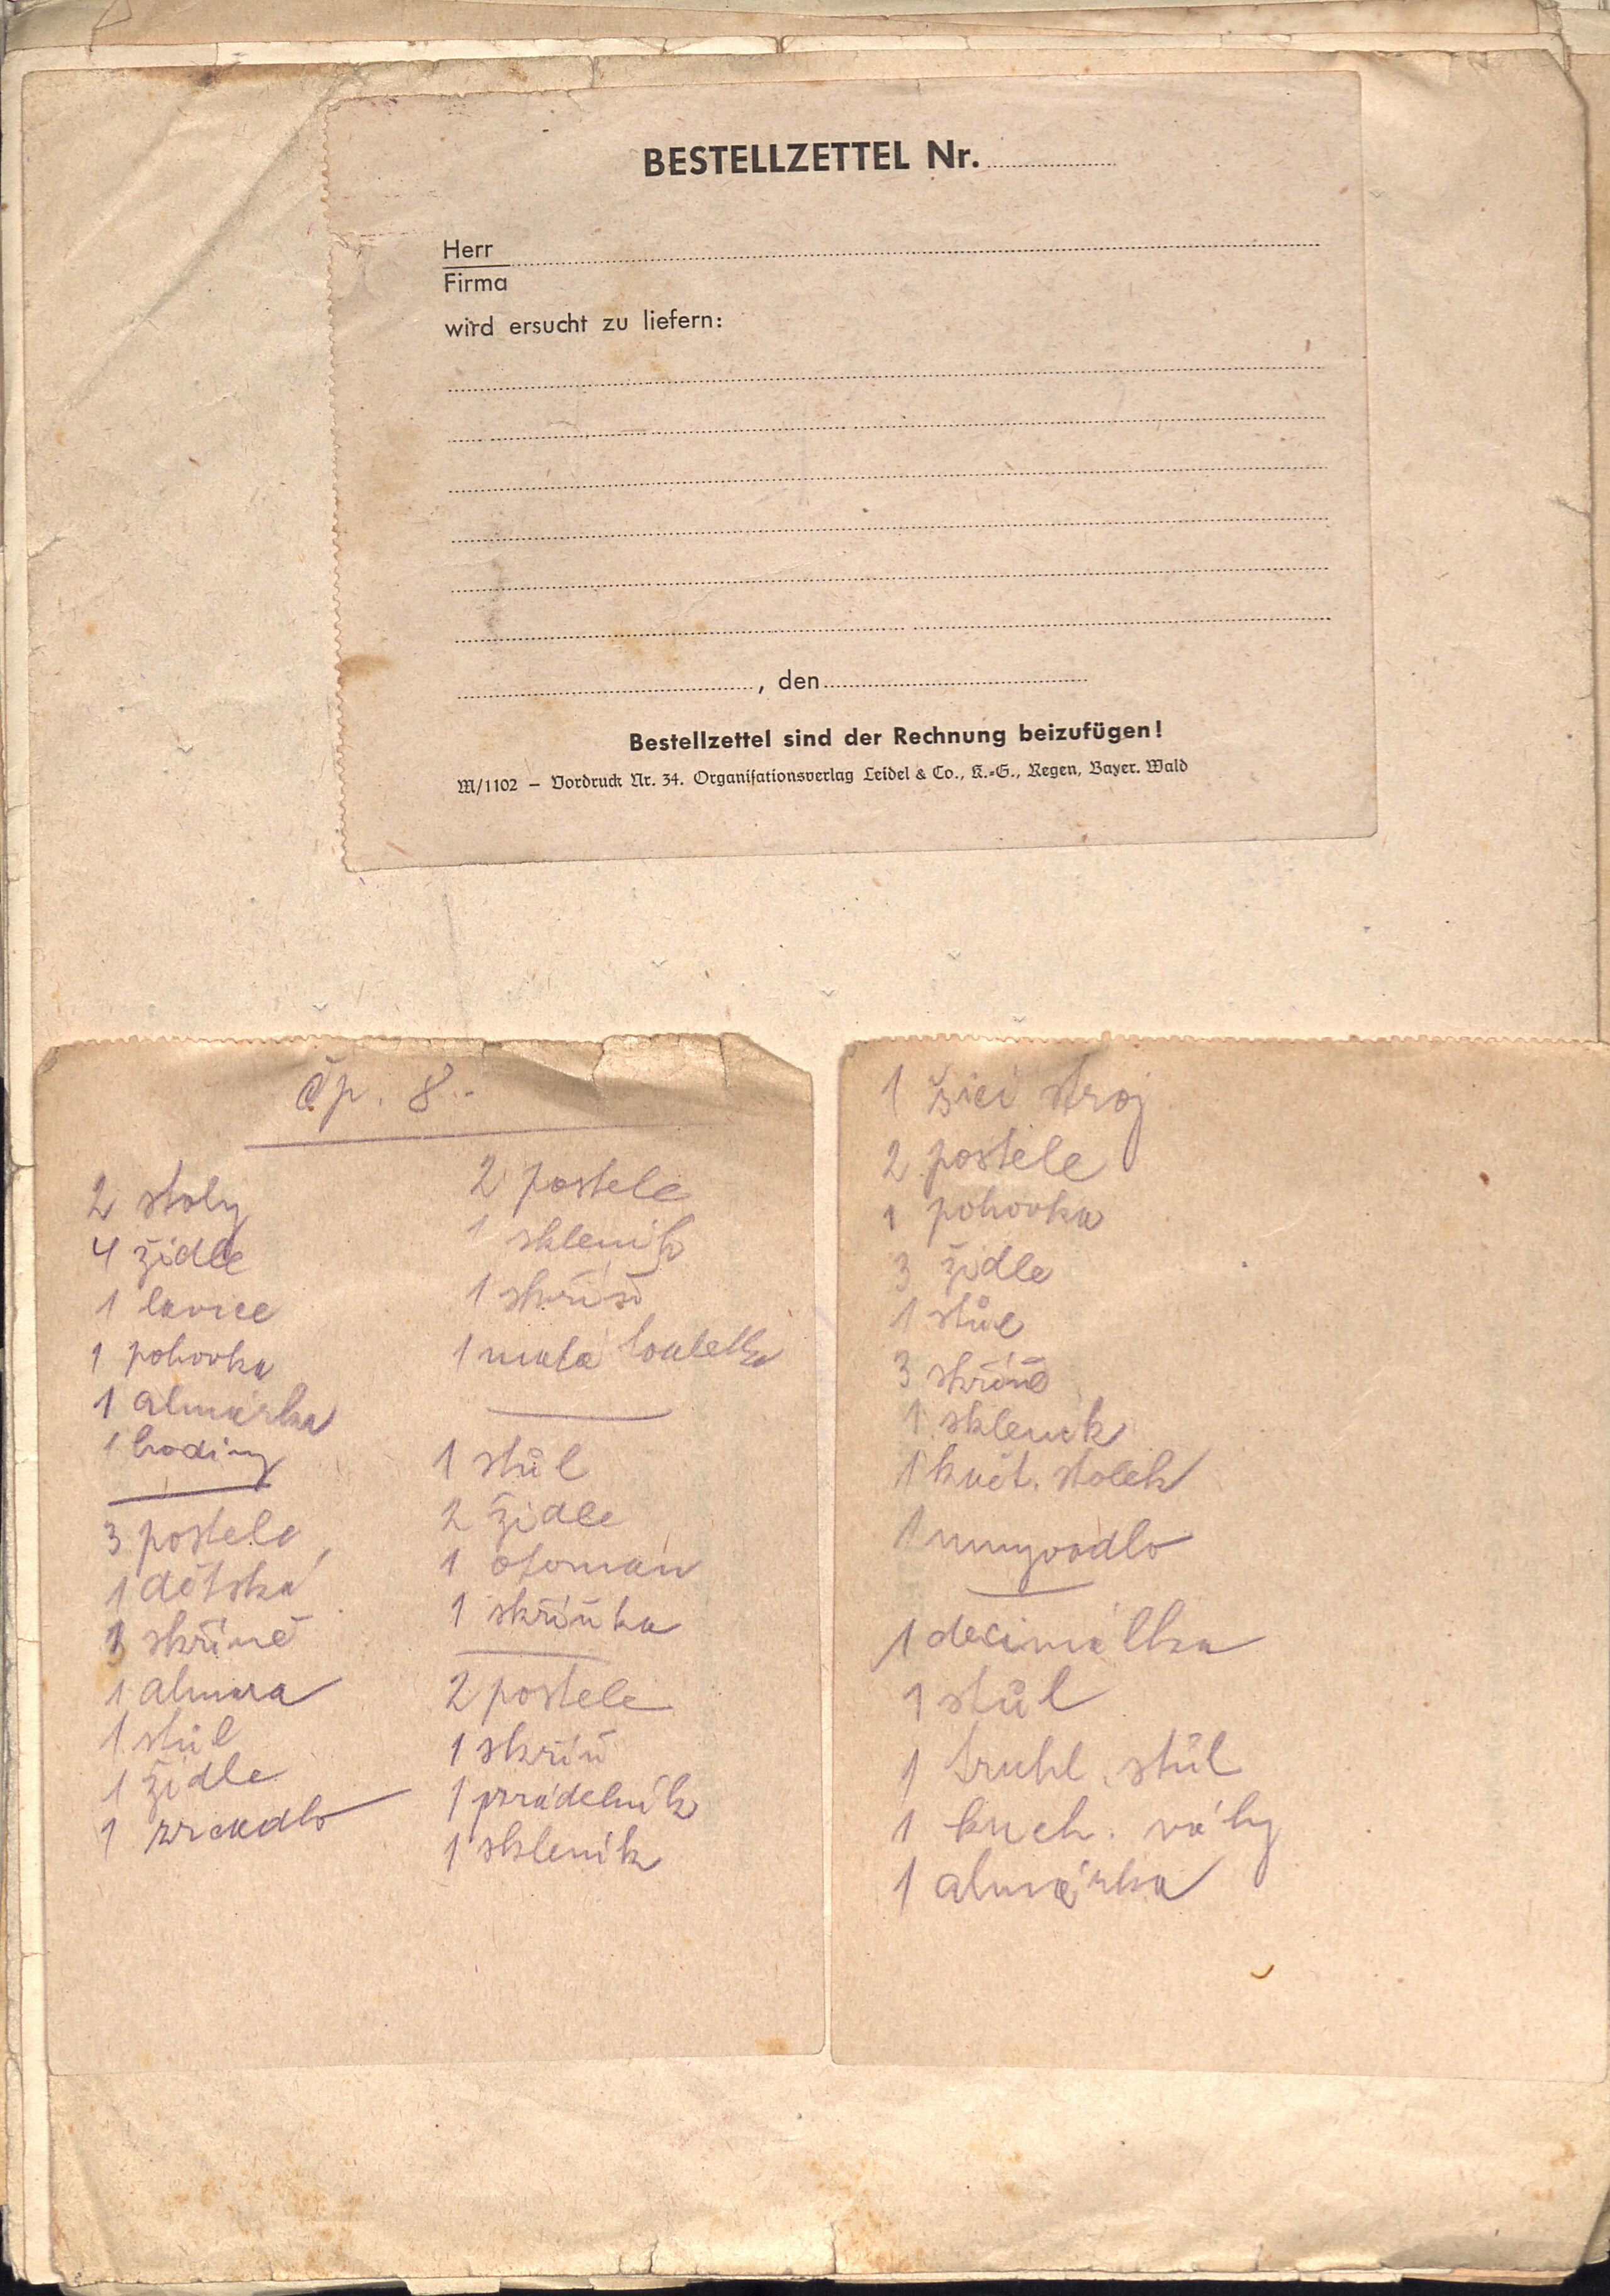 BESTELLZETTEL Nr.
Herr
Firma
wird ersucht zu liefern:
, den
Bestellzettel sind der Rechnung beizufügen!
M/1102 – Vordruck Nr. 34. Organisationsverlag Leidel & Co., K.-G., Regen, Bayer. Wald
Čp. 8.
2 stoly
4 židle
1 lavice
1 pohovka
1 almárka
1 hodiny
3 postele
1 dětská
3 skříně
1 almara
1 stůl
1 židle
1 zrcadlo
2 postele
1 skleník
1 skříň
1 malá toaletka
1 stůl
2 židle
1 otoman
1 skříňka
2 postele
1 skříň
1 prádelník
1 skleník
1 šicí stroj
2 postele
1 pohovka
3 židle
1 stůl
3 skříně
1 skleník
1 květ. stolek
1 umyvadlo
1 decimálka
1 stůl
1 truhl. stůl
1 kuch. váhy
1 almárka